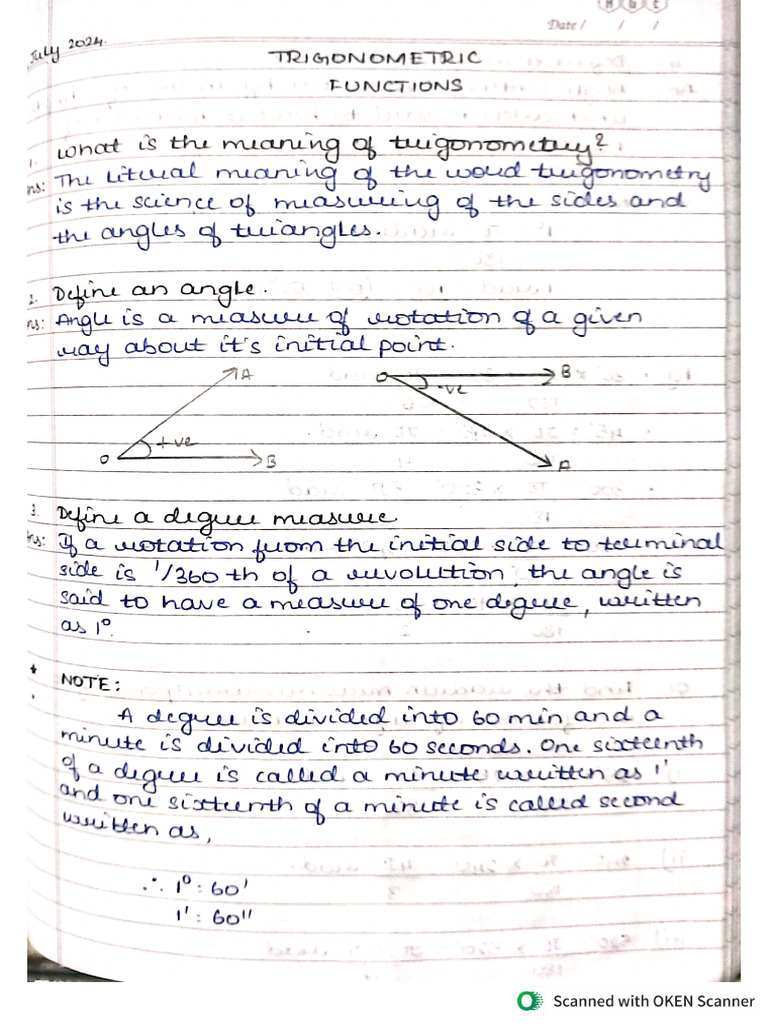 Date / / /
July 2024.
TRIGONOMETRIC
FUNCTIONS
1. What is the meaning of trigonometry?
ns: The literal meaning of the word trigonometry
is the science of measuring of the sides and
the angles of triangles.
2. Define an angle.
ns: Angle is a measure of rotation of a given
ray about it's initial point.
A
O B
+ve
O B
-ve
A
3. Define a degree measure
ns: If a rotation from the initial side to terminal
side is 1/360 th of a revolution, the angle is
said to have a measure of one degree, written
as 1°.
* NOTE:
A degree is divided into 60 min and a
minute is divided into 60 seconds. One sixteenth
of a degree is called a minute written as 1'
and one sixteenth of a minute is called second
written as,
∴ 1° : 60'
1' : 60"
Scanned with OKEN Scanner